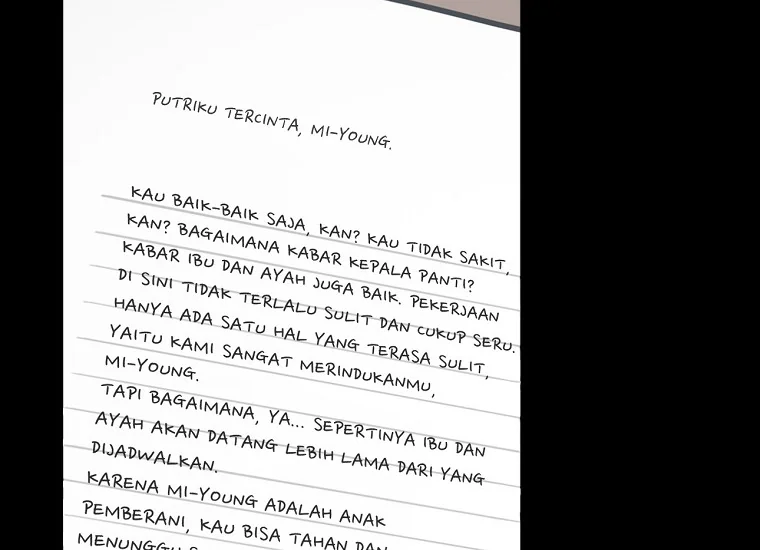 PUTRIKU TERCINTA, MI-YOUNG.
KAU BAIK-BAIK SAJA, KAN? KAU TIDAK SAKIT,
KAN? BAGAIMANA KABAR KEPALA PANTI?
KABAR IBU DAN AYAH JUGA BAIK. PEKERJAAN
DI SINI TIDAK TERLALU SULIT DAN CUKUP SERU.
HANYA ADA SATU HAL YANG TERASA SULIT,
YAITU KAMI SANGAT MERINDUKANMU,
MI-YOUNG.
TAPI BAGAIMANA, YA... SEPERTINYA IBU DAN
AYAH AKAN DATANG LEBIH LAMA DARI YANG
DIJADWALKAN.
KARENA MI-YOUNG ADALAH ANAK
PEMBERANI, KAU BISA TAHAN DAN
MENUNGGU